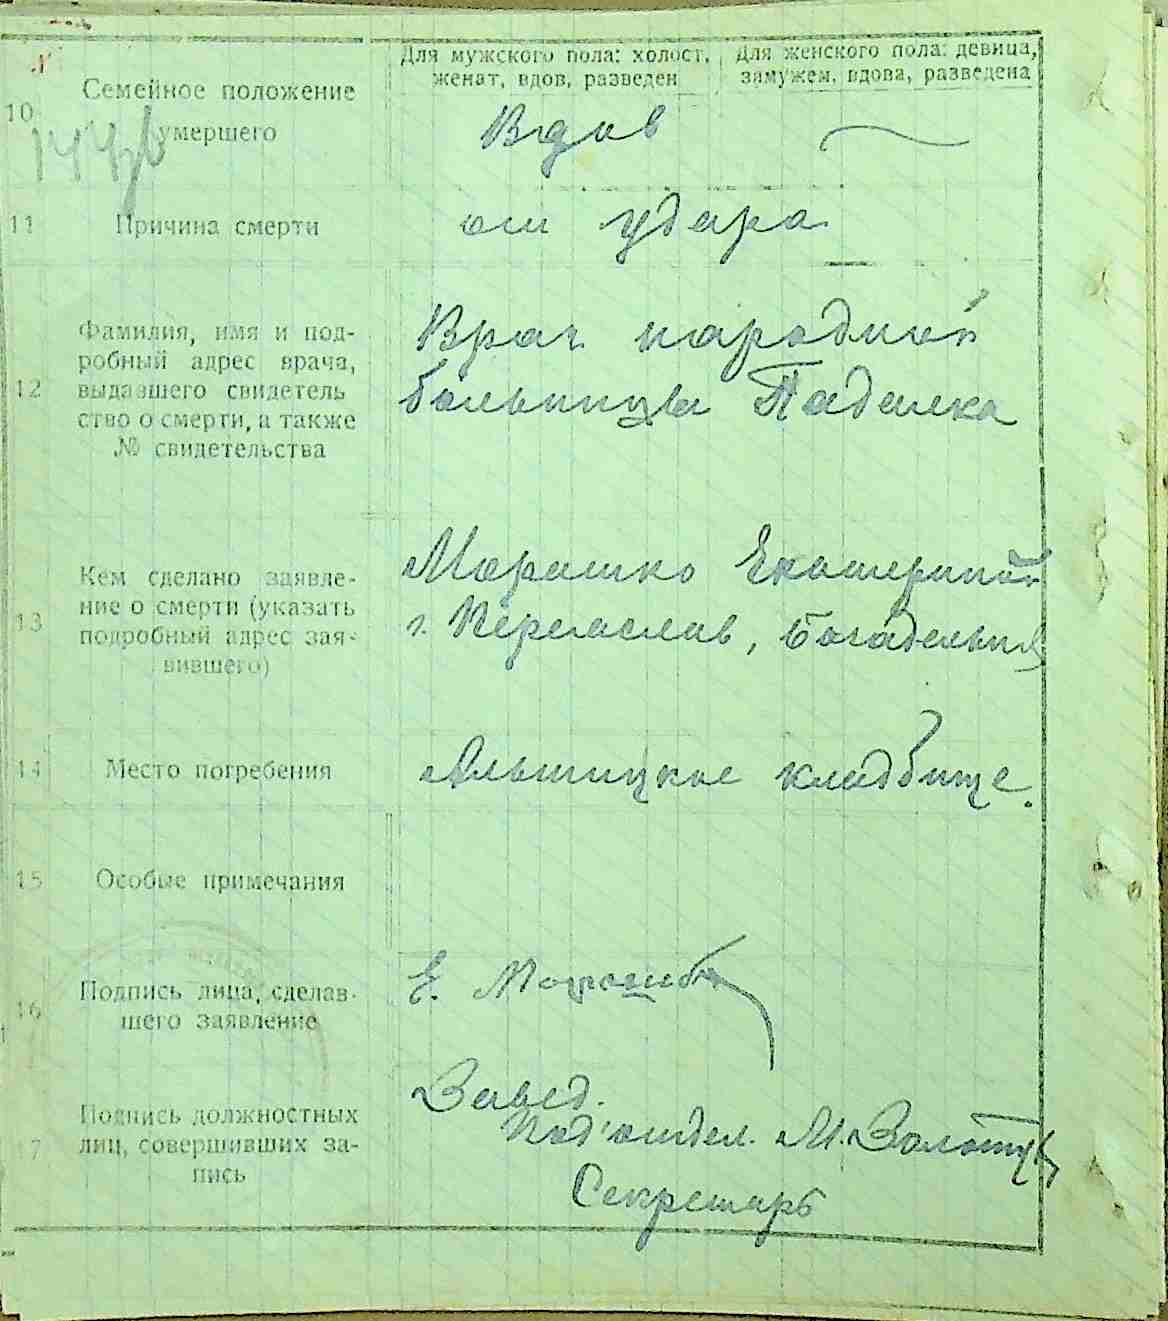 Для мужского пола: холост, женат, вдов, разведен
Для женского пола: девица, замужем, вдова, разведена
10
Семейное положение
умершего
Вдов
11
Причина смерти
от удара
12
Фамилия, имя и под-
робный адрес врача,
выдавшего свидетель
ство о смерти, а также
№ свидетельства
Врач народной
больницы Паделка
13
Кем сделано заявле-
ние о смерти (указать
подробный адрес зая-
вившего)
Морашко Екатериной
г. Переяслав, Богадельня
14
Место погребения
Альтицкое кладбище.
15
Особые примечания
16
Подпись лица, сделав-
шего заявление
Е.
17
Подпись должностных
лиц, совершивших за-
пись
Завед.
Под'отдел. М.
Секретарь